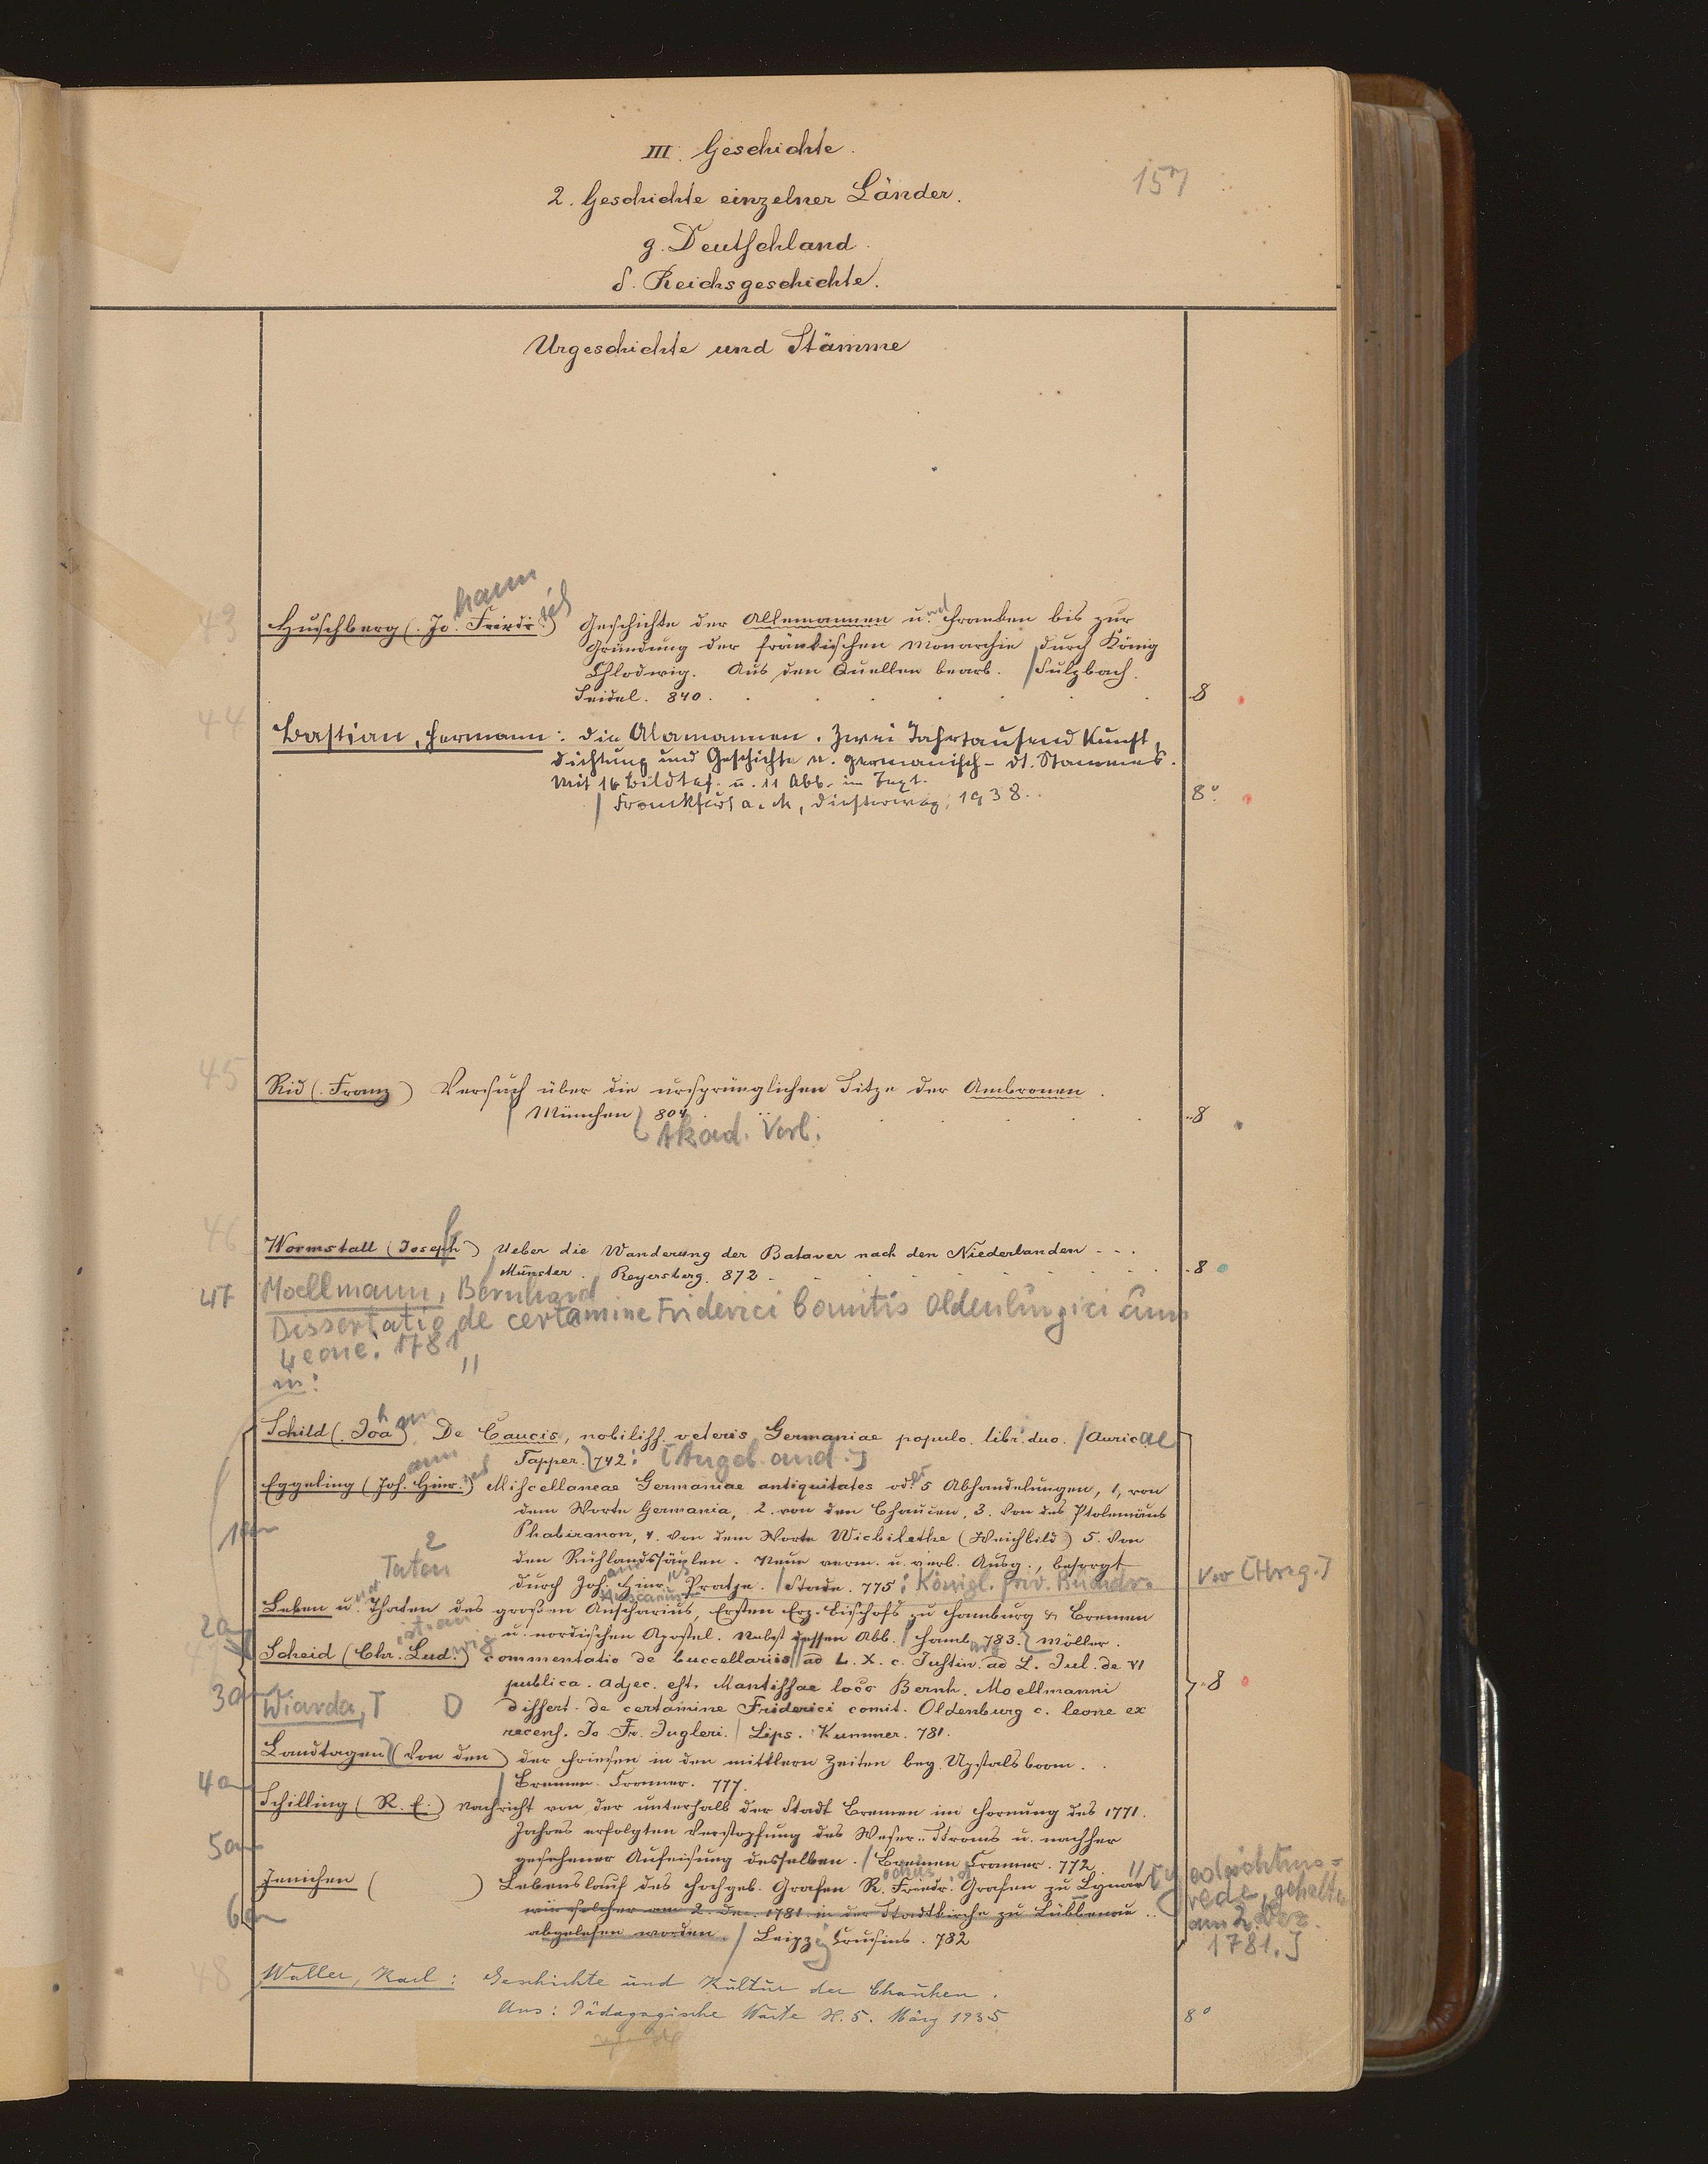 III. Geschichte.
157
2. Geschichte einzelner Länder.
g. Deutschland.
δ. Reichsgeschichte.
Urgeschichte und Stämme
43 Huschberg (Jo.hann Friedr.ich) Geschichte der Allemannen u.nd Franken bis zur
Gründung der fränkischen Monarchie durch König
Chlodwig. Aus den Quellen bearb. / Sulzbach.
Seidel. 840. 8
44 Bastian, Hermann: Die Alamannen. Zwei Jahrtausend Kunst,
Dichtung und Geschichte e. germanisch-dt. Stammes.
Mit 16 Bildtaf. u. 11 Abb. im Text.
/ Frankfurt a. M., Diesterweg, 1938. 8°
45 Rid (Franz) Versuch über die ursprünglichen Sitze der Ambronen.
/ München 804. 8
Akad. Verl.
46 Wormstall (Joseph) Ueber die Wanderung der Bataver nach den Niederlanden
/ Münster. / Reyersberg. 872. 8
47 Moellmann, Bernhard
Dissertatio de certamine Friderici Comitis Oldenburgici cum
Leone. 1781 "
in:
Schild (Joahann) De Caucis, nobiliss. veteris Germaniae populo. libri duo. / Auricae
Tapper. 742: [Angeb. and.]
Eggeling (Joh.ann Hinr.ich) Miscellaneae Germaniae antiquitates od. 5 Abhandelungen, 1, von
dem Worte Germania, 2. von den Chaucen, 3. von des Ptolemäus
1an Phabiranon, 4. von dem Worte Wicbilethe (Weichbild) 5. von
den Ruhlandssäulen. Neue verm. u. verb. Ausg., besorgt
durch Joh.ann Hinr.ich Pratje. / Stade. 775: Königl. priv. Buchdr. [Hrsg.]
Taten
Leben u.nd Thaten des großen Anscharius, Ersten Erz-Bischofs zu Hamburg & Bremen
2an u. nordischen Apostel. Nebst dessen Abb. / Hamb. 783. Möller.
Scheid (Chr.istian Lud.wig) commentatio de buccellariis // ad L. X. c. Justin. ad L. Jul. de vi
publica. Adjec. est. Mantissae loco Bernh. Moellmanni 8
3an Wiarda, T D dissert. de certamine Friderici comit. Oldenburg c. leone ex
recens. Jo. Fr. Jugleri. / Lips. Kummer. 781.
Landtagen (Von den) der Friesen in den mittlern Zeiten bey Upstalsboom.
4an / Bremen. Cramer. 777.
Schilling (R. E.) Nachricht von der unterhalb der Stadt Bremen im Hornung des 1771.
Jahres erfolgten Verstopfung des Weser-Stroms u. nachher
5an geschener Aufeisung desselben. / Bremen Cramer. 772.
Jenichen ( ) Lebenslauf des Hochgeb. Grafen R.ochus Friedr. Grafen zu Lynar // [Gedächtnis-
rede, gehalten
am 2. Dez.
1781.]
6an wie solcher am 2. Dec. 1781 in der Stadtkirche zu Lübbenau
abgelesen worden. / Leipzig Crusius. 782
48 Waller, Karl: Geschichte und Kultur der Chauken.
Aus: Pädagogische Warte H. 5. März 1935 8°